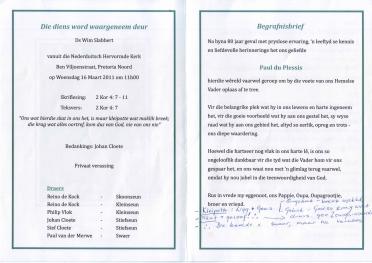 Die diens word waargeneem deur
Ds Wim Slabbert
vanuit die Nederduitsch Hervormde Kerk
Ben Viljoenstraat, Pretoria Noord
op Woensdag 16 Maart 2011 om 11h00
Skriflesing: 2 Kor 4: 7 - 11
Teksvers: 2 Kor 4: 7
"Ons wat hierdie skat in ons het, is maar kleipotte wat maklik breek;
die krag wat alles oortref, kom dus van God, nie van ons nie"
Bedankings: Johan Cloete
Privaat verassing
Draers
Reino de Kock - Skoonseun
Reino de Kock - Kleinseun
Philip Vlok - Kleinseun
Johan Cloete - Stiefseun
Stef Cloete - Stiefseun
Paul van der Merwe - Swaer
Begrafnisbrief
Na byna 80 jaar geval met pryslose ervaring, 'n leeftyd se kennis
en liefdevolle herinneringe het ons geliefde
Paul du Plessis
hierdie wêreld vaarwel geroep om by die voete van ons Hemelse
Vader oplaas af te tree.
Vir die belangrike plek wat hy in ons lewens en harte ingeneem
het, vir die goeie voorbeeld wat hy aan ons gestel het, sy wyse
raad wat hy aan ons gebied het, altyd so eerlik, oprug en trots -
ons diepe waardering.
Hoewel die hartseer nog vlak in ons harte lê, is ons so
ongelooflik dankbaar vir die tyd wat die Vader hom vir ons
gespaar het, en ons waat nou met 'n glimlag terug vaarwel,
omdat hy nou jubel in die teenwoordigheid van God.
Rus in vrede my eggenoot, ons Pappie, Oupa, Oupagrootjie,
broer en vriend.